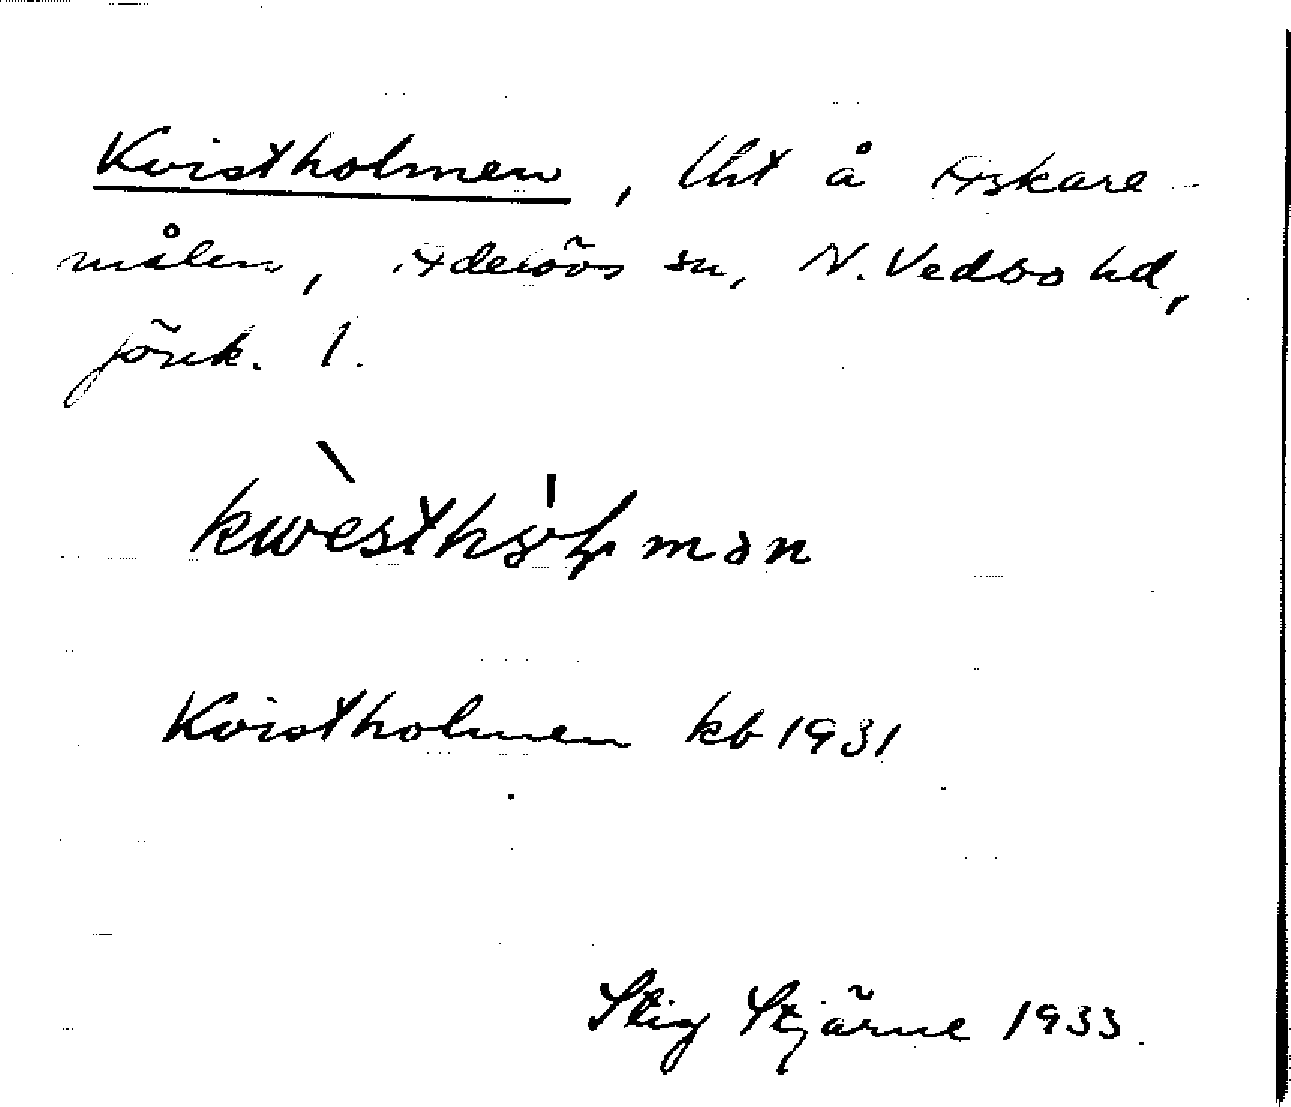 Kvistholmen, lht å Askare-
målen, Adelövs sn, N. Vedbo hd,
Jönk. l.
kwèsthɷ̀lmən
Kvistholmen kb 1931
Stig Stjärne 1933.